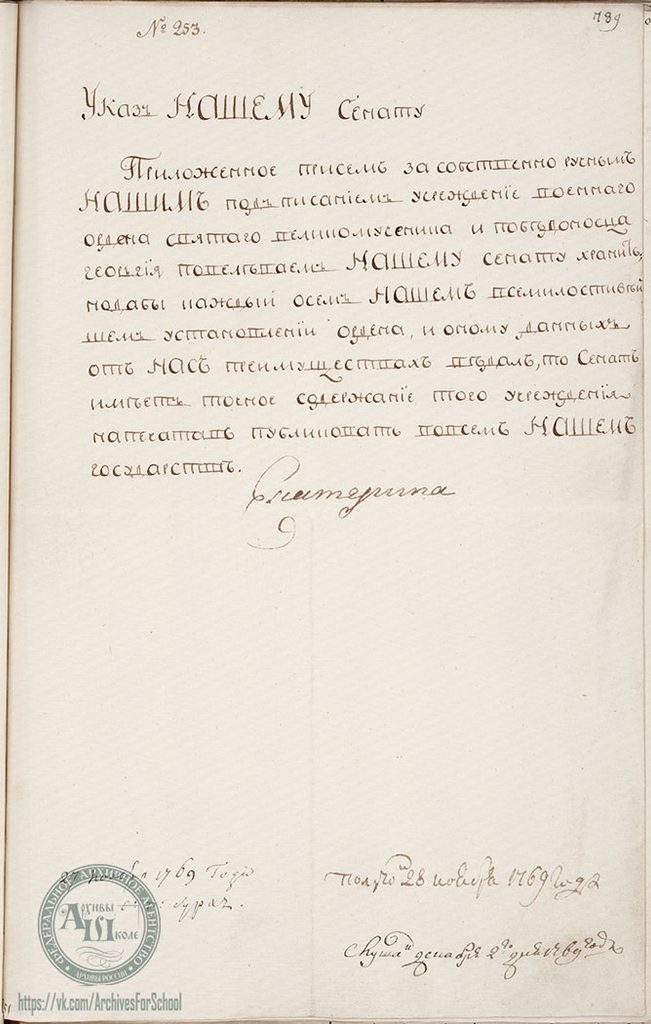 № 253.
789
Указъ НАШЕМУ Сенату
Приложенное присемъ за собственно ручнымъ
НАШИМЪ подъ писаніемъ учрежденіе военнаго
ордена святаго великомученика и победоносца
георгія повелеваемъ НАШЕМУ сенату хранить,
кодабы каждый осемъ НАШЕМЪ всемилостивей
шемъ установленіи ордена, и оному данныхъ
отъ НАСЪ преимуществахъ ведалъ, то Сенатъ
имеетъ точное содержаніе того учрежденія
напечатавъ публиковать повсемъ НАШЕМЪ
государстве.
Екатерина
27 ноября 1769 Года
Получ 28 ноября 1769 года
Слуша декабря 2го дня 1769 году
ФЕДЕРАЛЬНОЕ АРХИВНОЕ АГЕНТСТВО
Архивы Школе
АРХИВЫ РОССИИ
https://vk.com/ArchivesForSchool